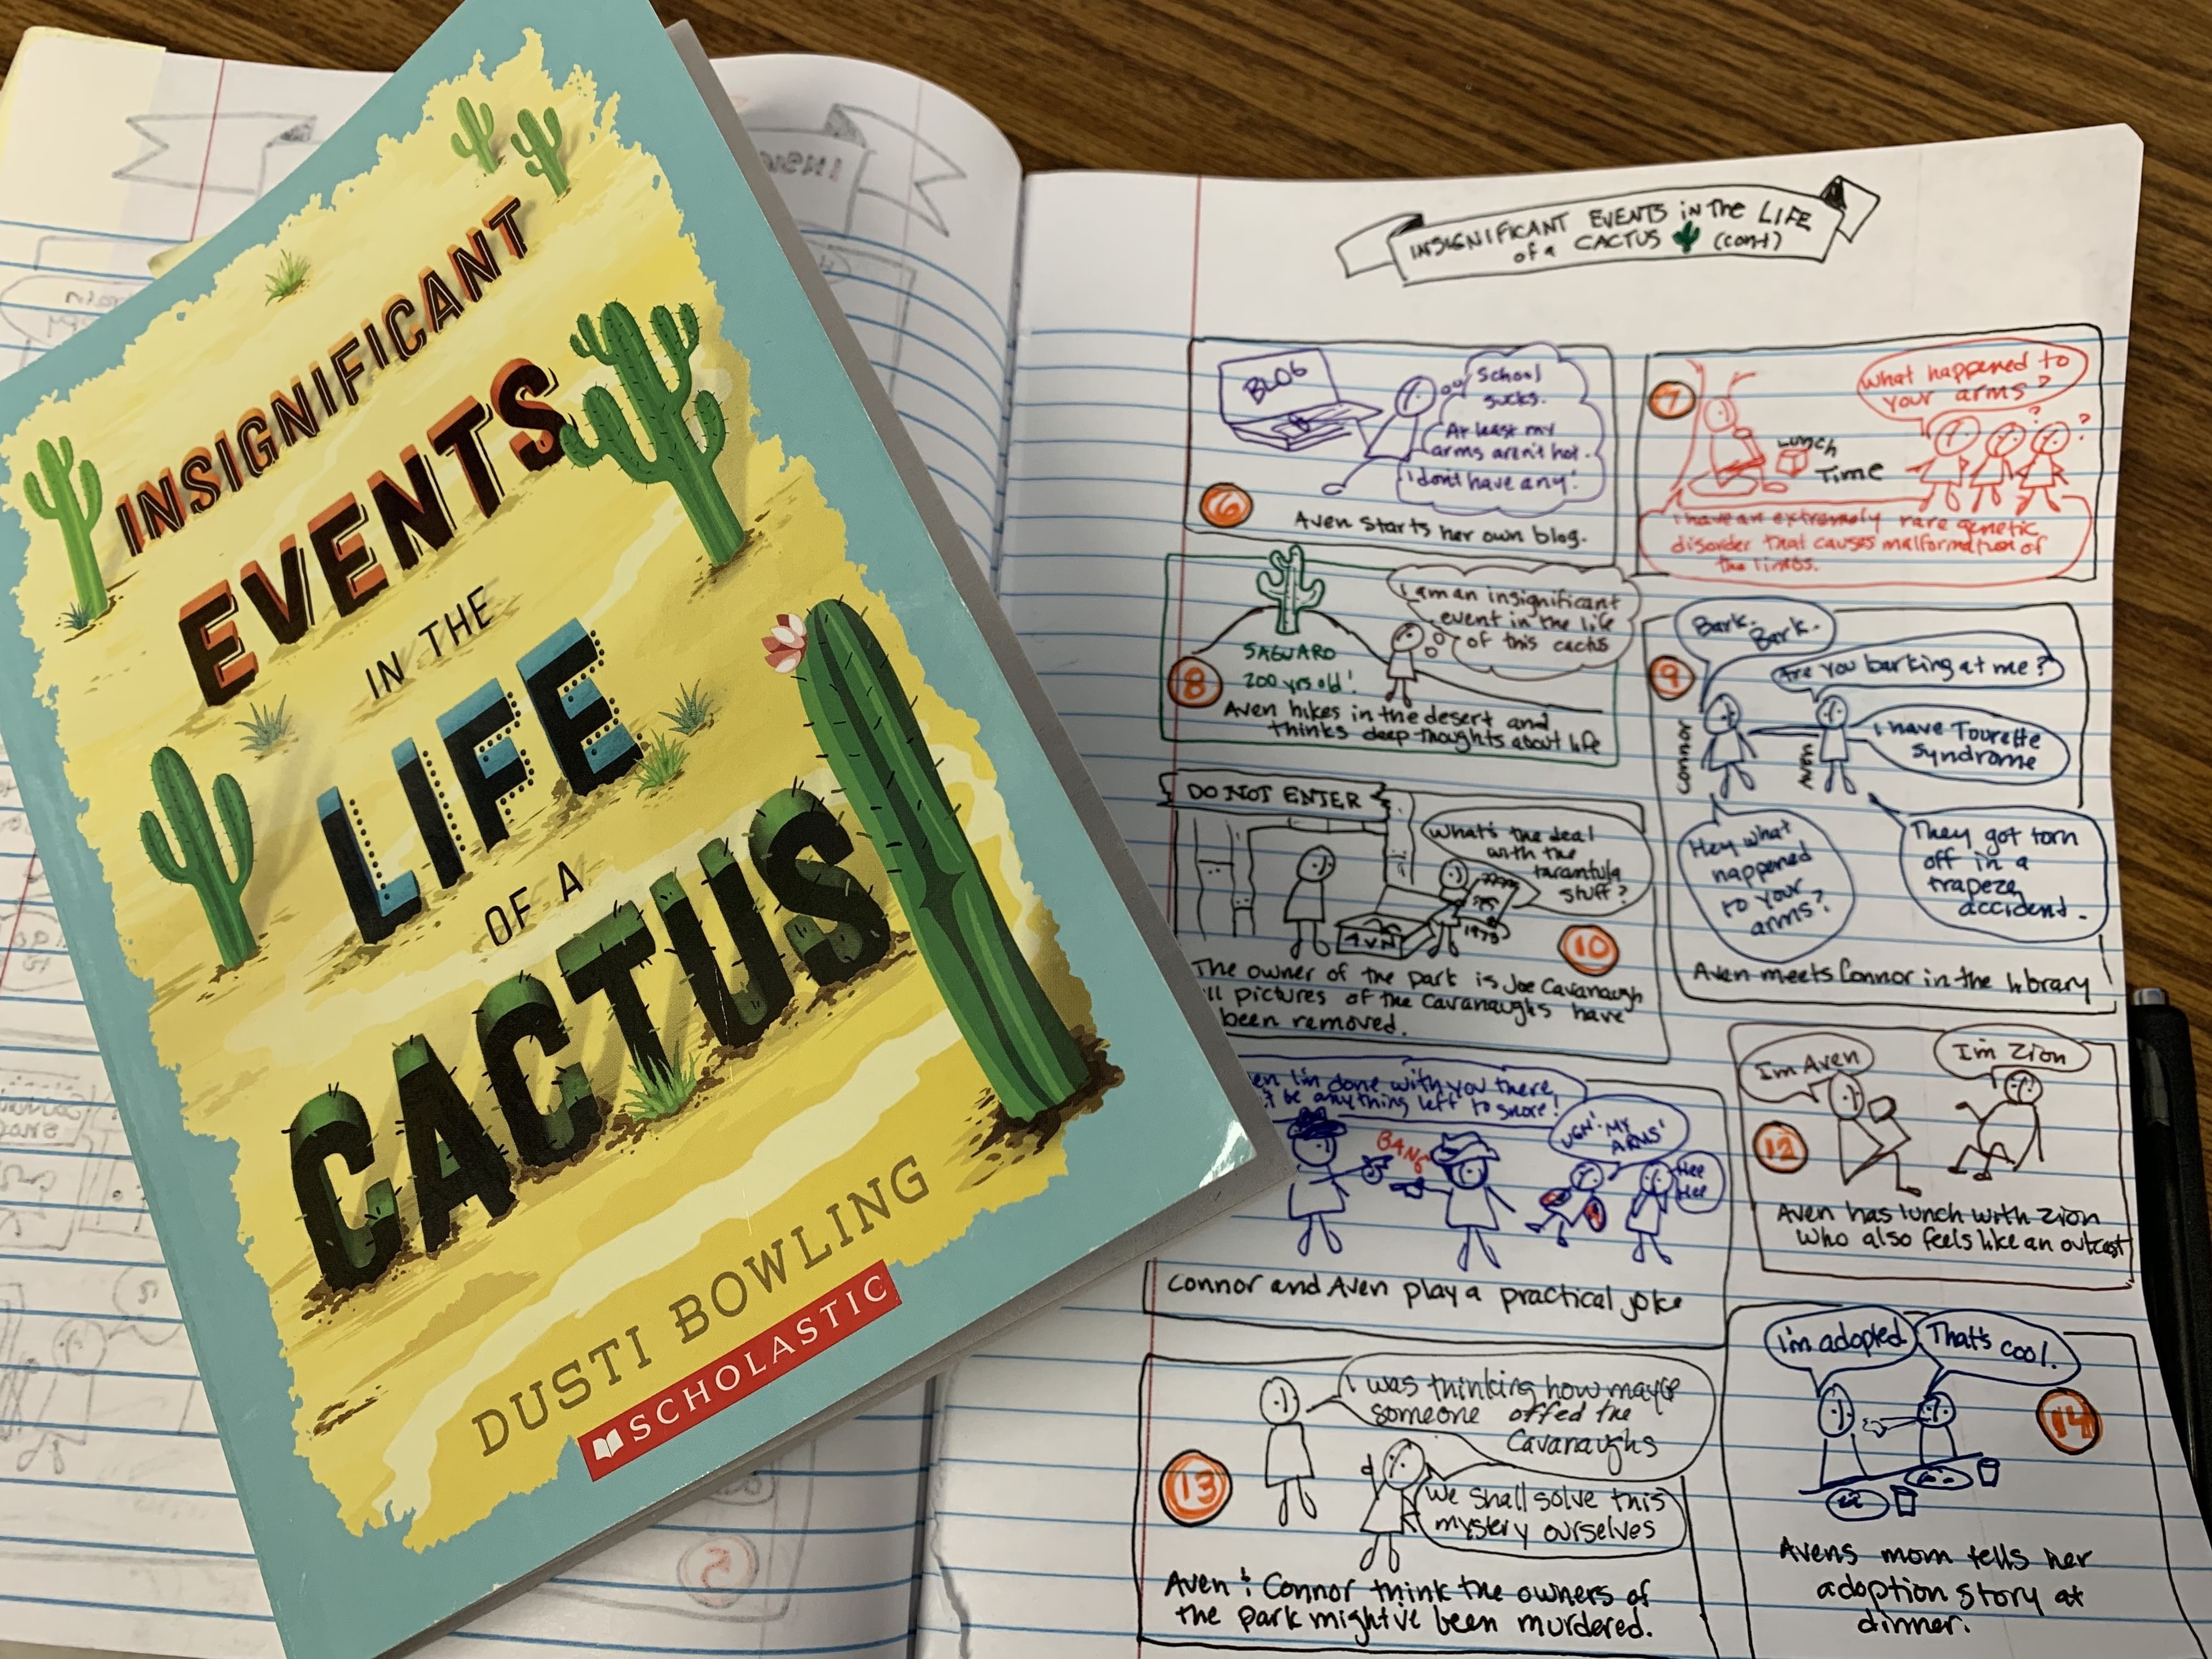 INSIGNIFICANT
EVENTS
IN THE
LIFE
OF A
CACTUS
DUSTI BOWLING
SCHOLASTIC
INSIGNIFICANT EVENTS in The LIFE
of a CACTUS (cont)
BLOG
School
sucks.
At least my
arms aren't hot.
I don't have any!
6
Aven starts her own blog.
7
What happened to
your arms?
Lunch
Time
? ?
I have an extremely rare genetic
disorder that causes malformation of
the limbs.
I am an insignificant
event in the life
of this cactus
SAGUARO
200 yrs old!
8
Aven hikes in the desert and
thinks deep thoughts about life
Bark.
Bark.
Are you barking at me?
9
I have Tourette
syndrome
Connor
Aven
Hey what
happened
to your
arms?
They got torn
off in a
trapeze
accident.
Aven meets Connor in the library
DO NOT ENTER
What's the deal
with the
tarantula
stuff?
AVN
1973
10
The owner of the park is Joe Cavanaugh
pictures of the Cavanaughs have
been removed.
I'm done with you there
be anything left to snore!
BANG
UGH! MY
ARMS!
Hee
Hee
Connor and Aven play a practical joke
I'm Aven
I'm Zion
12
Aven has lunch with Zion
who also feels like an outcast
I was thinking how maybe
someone offed the
Cavanaughs
13
We shall solve this
mystery ourselves
Aven & Connor think the owners of
the park might've been murdered.
I'm adopted
That's cool.
14
Avens mom tells her
adoption story at
dinner.
5